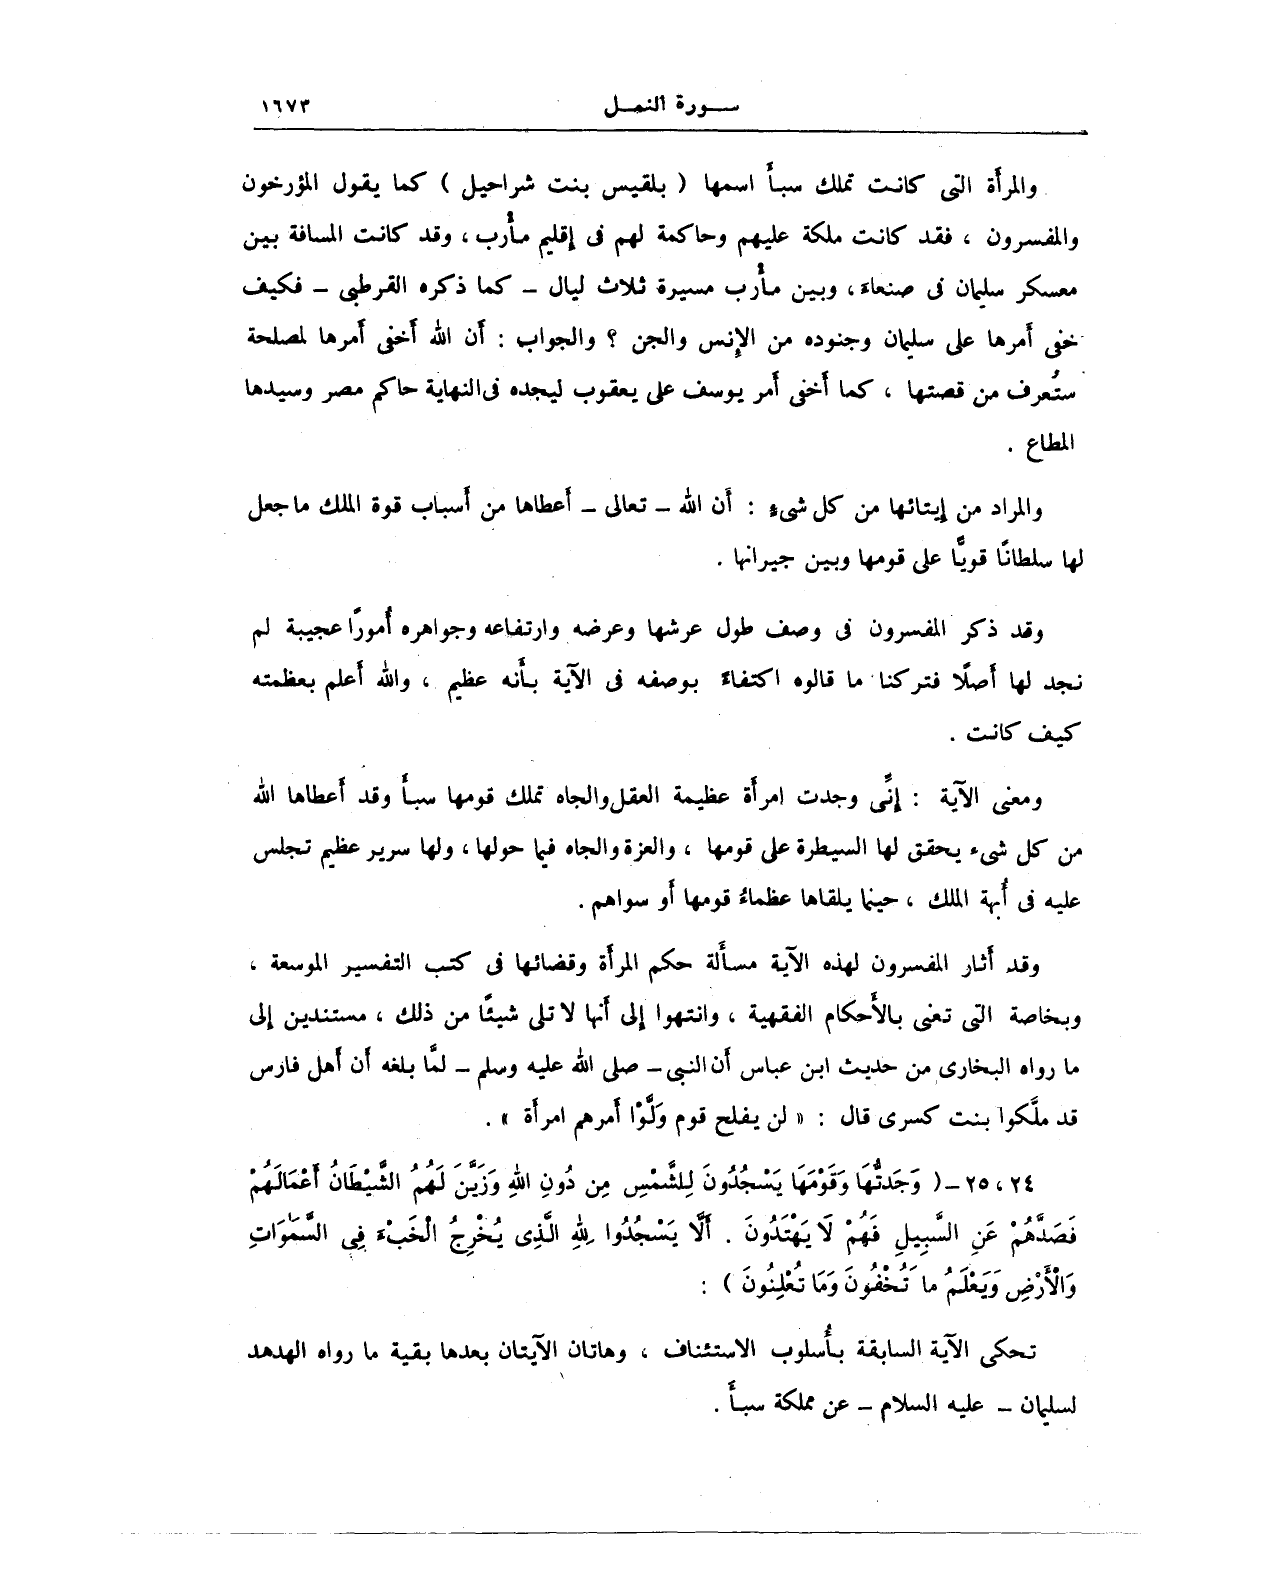 سورة النمل ١٦٧٣
والمرأة التى كانت تملك سبأ اسمها ( بلقيس بنت شراحيل ) كما يقول المؤرخون
والمفسرون ، فقد كانت ملكة عليهم وحاكمة لهم فى إقليم مأرب ، وقد كانت المسافة بين
معسكر سليمان فى صنعاء ، وبين مأرب مسيرة ثلاث ليال – كما ذكره القرطبى – فكيف
خفى أمرها على سليمان وجنوده من الإنس والجن ؟ والجواب : أن الله أخفى أمرها لمصلحة
ستُعرف من قصتها ، كما أخفى أمر يوسف على يعقوب ليجده فى النهاية حاكم مصر وسيدها
المطاع .
والمراد من إيتائها من كل شىءٍ : أن الله – تعالى – أعطاها من أسباب قوة الملك ما جعل
لها سلطانًا قويًّا على قومها وبين جيرانها .
وقد ذكر المفسرون فى وصف طول عرشها وعرضه وارتفاعه وجواهره أُمورًا عجيبة لم
نجد لها أصلًا فتركنا ما قالوه اكتفاءً بوصفه فى الآية بأنه عظيم ، والله أعلم بعظمته
كيف كانت .
ومعنى الآية : إنَّى وجدت امرأة عظيمة العقل والجاه تملك قومها سبأ وقد أعطاها الله
من كل شىء يحقق لها السيطرة على قومها ، والعزة والجاه فيما حولها ، ولها سرير عظيم تجلس
عليه فى أُبهة الملك ، حينما يلقاها عظماءُ قومها أو سواهم .
وقد أثار المفسرون لهذه الآية مسألة حكم المرأة وقضائها فى كتب التفسير الموسعة ،
وبخاصة التى تعنى بالأحكام الفقهية ، وانتهوا إلى أنها لا تلى شيئًا من ذلك ، مستندين إلى
ما رواه البخارى من حديث ابن عباس أن النبى – صلى الله عليه وسلم – لمَّا بلغه أن أهل فارس
قد ملَّكوا بنت كسرى قال : « لن يفلح قوم وَلَّوْا أمرهم امرأة » .
٢٤ ، ٢٥ – ( وَجَدتُّهَا وَقَوْمَهَا يَسْجُدُونَ لِلشَّمْسِ مِن دُونِ اللهِ وَزَيَّنَ لَهُمُ الشَّيْطَانُ أَعْمَالَهُمْ
فَصَدَّهُمْ عَنِ السَّبِيلِ فَهُمْ لَا يَهْتَدُونَ . أَلَّا يَسْجُدُوا لِلهِ الَّذِى يُخْرِجُ الْخَبْءَ فِى السَّمَٰوَاتِ
وَالْأَرْضِ وَيَعْلَمُ مَا تُخْفُونَ وَمَا تُعْلِنُونَ ) :
تحكى الآية السابقة بأُسلوب الاستئناف ، وهاتان الآيتان بعدها بقية ما رواه الهدهد
لسليمان – عليه السلام – عن مملكة سبأ .